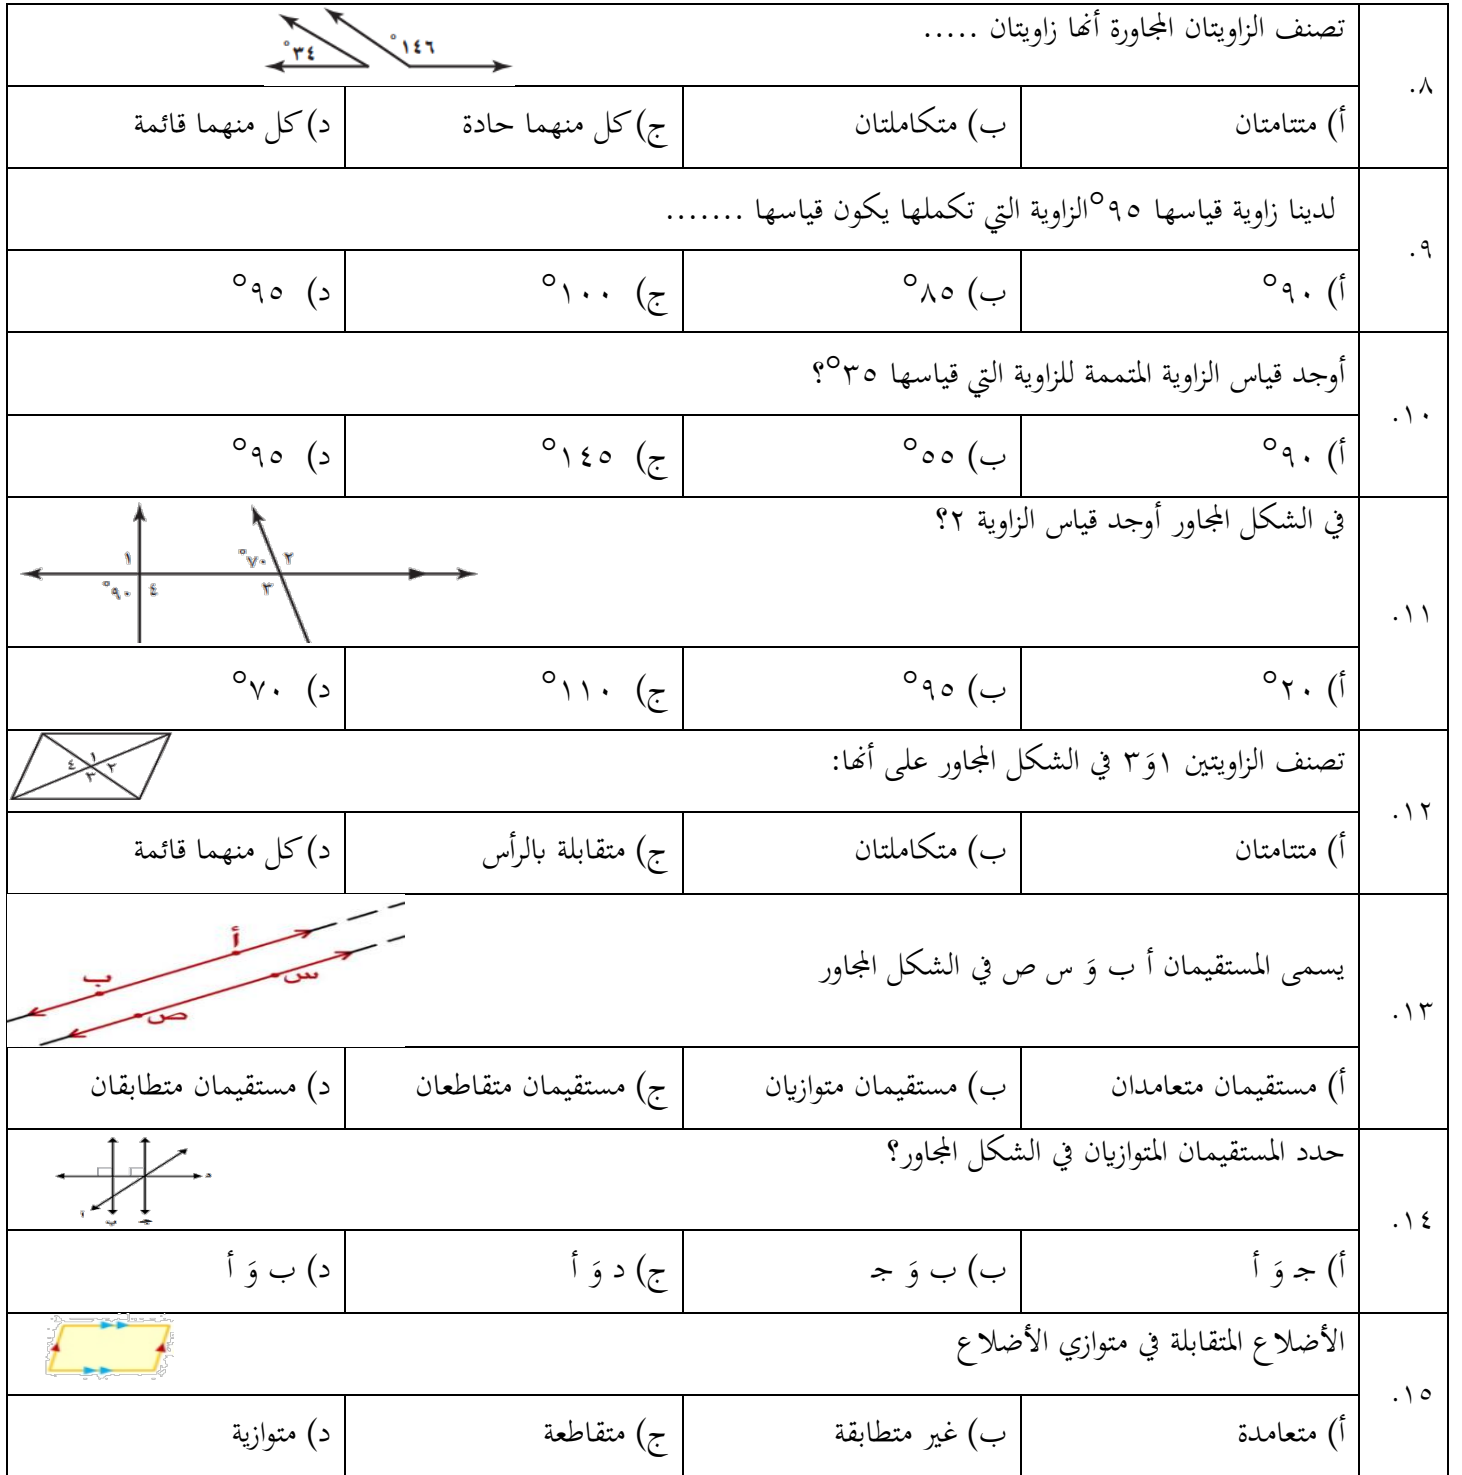 تصنف الزاويتان المجاورة أنها زاويتان .....
°٣٤ °١٤٦
.٨
أ) متتامتان ب) متكاملتان ج) كل منهما حادة د) كل منهما قائمة
لدينا زاوية قياسها ٩٥° الزاوية التي تكملها يكون قياسها .......
.٩
أ) ٩٠° ب) ٨٥° ج) ١٠٠° د) ٩٥°
أوجد قياس الزاوية المتممة للزاوية التي قياسها ٣٥°؟
.١٠
أ) ٩٠° ب) ٥٥° ج) ١٤٥° د) ٩٥°
في الشكل المجاور أوجد قياس الزاوية ٢؟
١ °٧٠ ٢
°٩٠ ٤ ٣
.١١
أ) ٢٠° ب) ٩٥° ج) ١١٠° د) ٧٠°
تصنف الزاويتين ١وَ٣ في الشكل المجاور على أنها:
١
٤ ٢
٣
.١٢
أ) متتامتان ب) متكاملتان ج) متقابلة بالرأس د) كل منهما قائمة
أ
ب س
ص
يسمى المستقيمان أ ب وَ س ص في الشكل المجاور
.١٣
أ) مستقيمان متعامدان ب) مستقيمان متوازيان ج) مستقيمان متقاطعان د) مستقيمان متطابقان
حدد المستقيمان المتوازيان في الشكل المجاور؟
د
أ ب جـ
.١٤
أ) جـ وَ أ ب) ب وَ جـ ج) د وَ أ د) ب وَ أ
الأضلاع المتقابلة في متوازي الأضلاع
.١٥
أ) متعامدة ب) غير متطابقة ج) متقاطعة د) متوازية